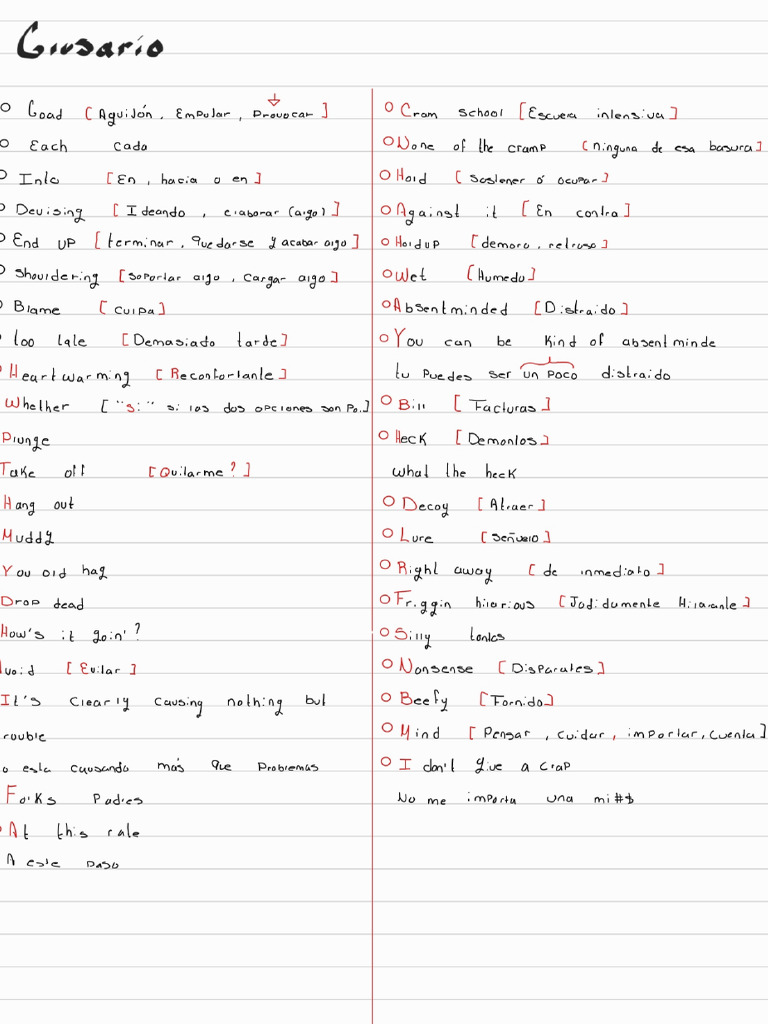 Glosario
Goad [Aguijón, Empujar, Provocar]
Each cada
Into [En, hacia o en]
Devising [Ideando, elaborar (algo)]
End up [terminar, Quedarse y acabar algo]
Shouldering [Soportar algo, Cargar algo]
Blame [culpa]
Too late [Demasiado tarde]
Heartwarming [Reconfortante]
Whether ["si" si las dos opciones son Po.]
Plunge
Take off [Quitarme?]
Hang out
Muddy
You old hag
Drop dead
How's it goin'?
Avoid [Evitar]
It's clearly causing nothing but
rouble
o esta causando más que problemas
Folks Padres
At this rate
A este paso
Cram school [Escuela intensiva]
None of the cramp [ninguna de esa basura]
Hold [Sostener ó ocupar]
Against it [En contra]
Holdup [demora, retraso]
Wet [Humedo]
Absentminded [Distraido]
You can be kind of absentminde
tu puedes ser un poco distraido
Bill [Facturas]
Heck [Demontos]
what the heck
Decoy [Atraer]
Lure [Señuelo]
Right away [de inmediato]
Friggin hilarious [Jodidamente Hilarante]
Silly tontos
Nonsense [Disparates]
Beefy [Fornido]
Mind [Pensar, cuidar, importar, cuenta]
I don't give a crap
No me importa una mi#$